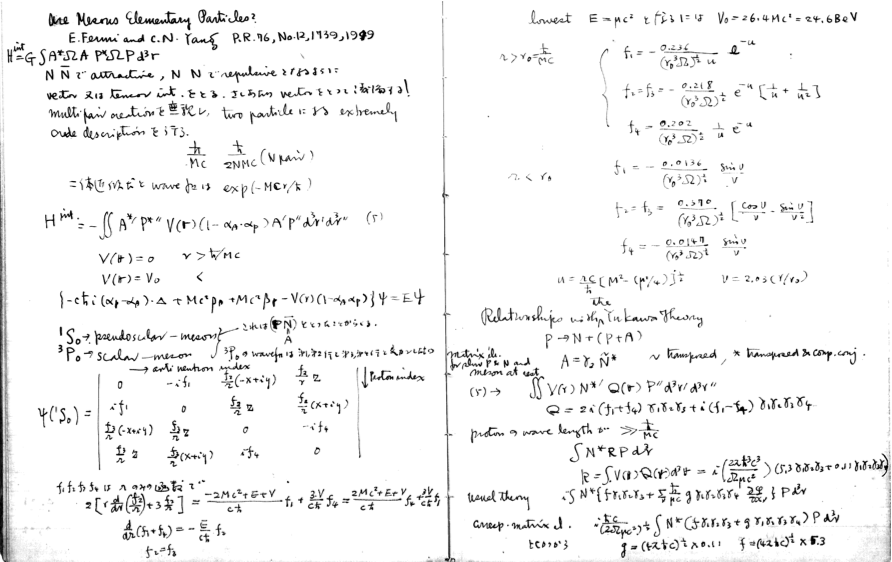 Are Mesons Elementary Particles?
E. Fermi and C.N. Yang P.R. 76, No.12, 1739, 1949
H^int = G∫A*ΩA P*ΩP d³r
N N̄ で attractive, N N で repulsive となるように
vector 又は tensor int. をとる. vector をとって
multipair creation を無視し, two particle による extremely
crude description を行う.
ħ/MC ħ/2NMC (N pair)
wave fn は exp(-MCr/ħ)
H^int = -∬ A*' P*'' V(r)(1-α_A·α_P) A' P'' d³r' d³r'' (5)
V(r) = 0 r > ħ/MC
V(r) = V₀ <
{-cħi(α_P-α_A)·Δ + Mc²β_A + Mc²β_P - V(r)(1-α_A α_P)}ψ = Eψ
¹S₀ → pseudoscalar-meson
³P₀ → scalar-meson
→ anti neutron index
↓ proton index
ψ(¹S₀) =
0 -if₁ f₂/r(-x+iy) f₂/r z
if₁ 0 f₂/r z f₂/r(x+iy)
f₃/r(-x+iy) f₃/r z 0 -if₄
f₃/r z f₃/r(x+iy) if₄ 0
f₁ f₂ f₃ f₄ は r の
2[r d/dr(f₂/r) + 3 f₂/r] = (-2Mc²+E+V)/cħ f₁ + 3V/cħ f₄ = (2Mc²+E+V)/cħ f₄ + 3V/cħ f₁
d/dr(f₁+f₄) = -E/cħ f₂
f₂ = f₃
lowest E = μc² V₀ = 26.4 Mc² = 24.6 BeV
r > r₀ = ħ/MC
f₁ = -0.236/(r₀³Ω)^½ u e^-u
f₂ = f₃ = -0.218/(r₀³Ω)^½ e^-u [1/u + 1/u²]
f₄ = 0.202/(r₀³Ω)^½ 1/u e^-u
r < r₀
f₁ = -0.0136/(r₀³Ω)^½ sin v/v
f₂ = f₃ = 0.390/(r₀³Ω)^½ [cos v/v - sin v/v²]
f₄ = -0.0147/(r₀³Ω)^½ sin v/v
u = rc/ħ [M² - (μ²/4)]^½ v = 2.03(r/r₀)
Relationships with the Yukawa Theory
P → N + (P + A)
matrix el. for slow P & N and meson at rest
A = γ₂ Ñ* ~ transposed, * transposed & comp. conj.
(5) → ∬ V(r) N*' Q(r) P'' d³r' d³r''
Q = 2i(f₁+f₄) γ₁γ₂γ₃ + i(f₁-f₄) γ₁γ₂γ₃γ₄
proton の wave length が ≫ ħ/MC
∫ N*RP d³r
R = ∫V(r) Q(r) d³r = i(22ħ³c³/Ωμc²)(5.3 γ₁γ₂γ₃ + 0.11 γ₁γ₂γ₃γ₄)
usual theory i∫N*{fγ₁γ₂γ₃ + Σ ħ/μc g γ₁γ₂γ₃γ₄ ∂φ/∂x}P d³r
corresp. matrix el. i ħc/(2Ωμc²)^½ ∫N*(fγ₁γ₂γ₃ + gγ₁γ₂γ₃γ₄) P d³r
g = (42ħc)^½ × 0.11 f = (42ħc)^½ × 5.3